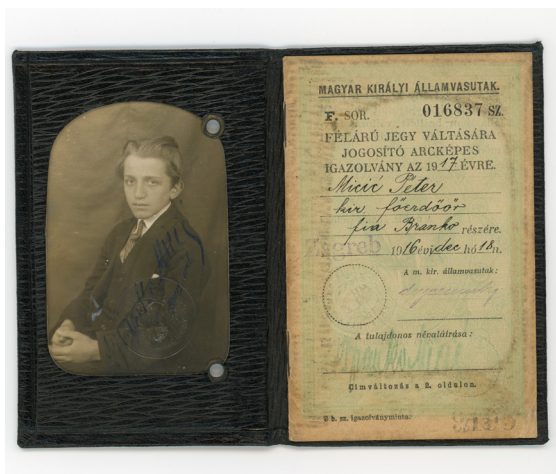 MAGYAR KIRÁLYI ÁLLAMVASUTAK.
F. SOR. 016837 SZ.
FÉLÁRÚ JEGY VÁLTÁSÁRA
JOGOSÍTÓ ARCKÉPES
IGAZOLVÁNY AZ 1917 ÉVRE.
Micić Péter
kir főerdőőr
fia Branko részére.
Zagreb 1916 évi dec hó 18 n.
A m. kir. államvasutak:
A tulajdonos névaláirása:
Címváltozás a 2. oldalon.
b. sz. igazolványminta.